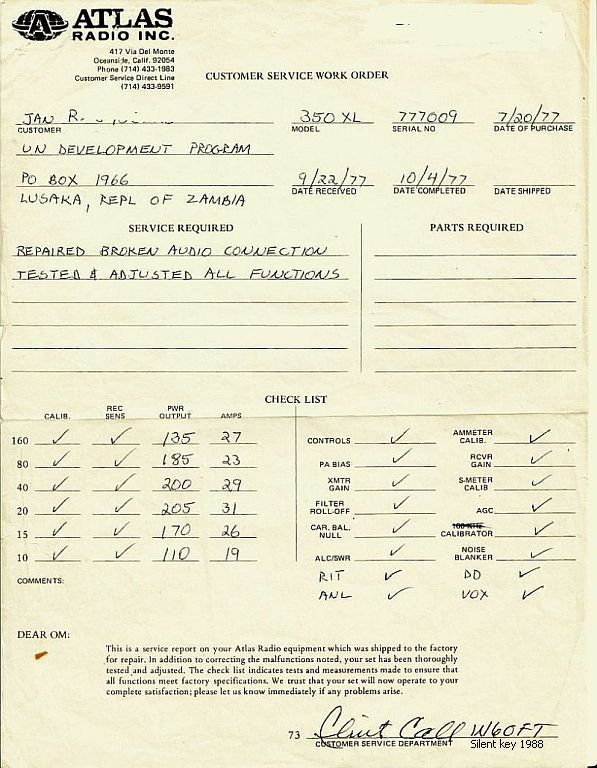 ATLAS
RADIO INC.
417 Via Del Monte
Oceanside, Calif. 92054
Phone (714) 433-1983
Customer Service Direct Line
(714) 433-9591
CUSTOMER SERVICE WORK ORDER
JAN R. 350 XL 777009 7/20/77
CUSTOMER MODEL SERIAL NO DATE OF PURCHASE
UN DEVELOPMENT PROGRAM
PO BOX 1966 9/22/77 10/4/77
DATE RECEIVED DATE COMPLETED DATE SHIPPED
LUSAKA, REPL OF ZAMBIA
SERVICE REQUIRED PARTS REQUIRED
REPAIRED BROKEN AUDIO CONNECTION
TESTED & ADJUSTED ALL FUNCTIONS
CHECK LIST
CALIB. REC SENS PWR OUTPUT AMPS
160 ✓ ✓ 135 27
80 ✓ ✓ 185 23
40 ✓ ✓ 200 29
20 ✓ ✓ 205 31
15 ✓ ✓ 170 26
10 ✓ ✓ 110 19
CONTROLS ✓ AMMETER CALIB. ✓
PA BIAS ✓ RCVR GAIN ✓
XMTR GAIN ✓ S-METER CALIB ✓
FILTER ROLL-OFF ✓ AGC ✓
CAR. BAL. NULL ✓ 100 KHz CALIBRATOR ✓
ALC/SWR ✓ NOISE BLANKER ✓
RIT ✓ DD ✓
ANL ✓ VOX ✓
COMMENTS:
DEAR OM:
This is a service report on your Atlas Radio equipment which was shipped to the factory
for repair. In addition to correcting the malfunctions noted, your set has been thoroughly
tested and adjusted. The check list indicates tests and measurements made to ensure that
all functions meet factory specifications. We trust that your set will now operate to your
complete satisfaction; please let us know immediately if any problems arise.
73 Clint Call W6OFT
CUSTOMER SERVICE DEPARTMENT
Silent key 1988